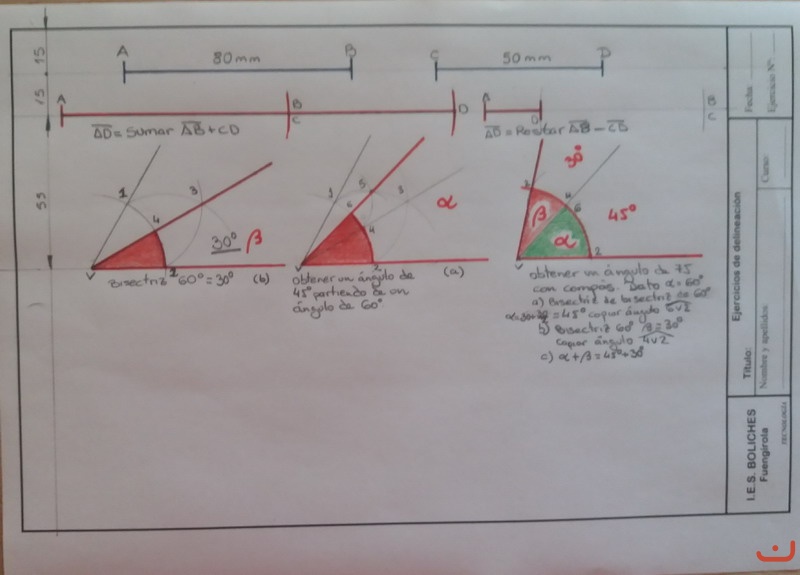 15
A 80mm B
C 50mm D
15
A B C D
A D B C
AD= Sumar AB+CD
AD= Restar AB-CD
55
1 3 4 2 V
30° β
Bisectriz 60°=30° (b)
1 5 3 6 4 2 V
α
obtener un ángulo de
45° partiendo de un
ángulo de 60°
(a)
30°
45°
β
α
6 2 V
obtener un ángulo de 75
con compás. Dato α=60°
a) Bisectriz de bisectriz de 60°
=45° copiar ángulo 6V2
b) Bisectriz 60° β=30°
copiar ángulo 4V2
c) α+β=45°+30°
Fecha:
Ejercicio Nº:
Ejercicios de delineación
Curso:
Título:
Nombre y apellidos:
I.E.S. BOLICHES
Fuengirola
TECNOLOGÍA